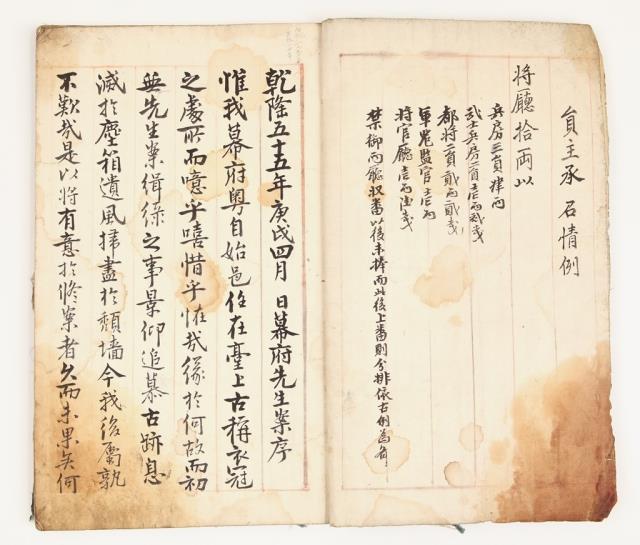 員主承名情例
將廳拾両以
兵房三員肆両
武士兵房一員壱両弐戔
都將二員貳両貳戔
軍器監官壱両
將官廳壱両陸戔
禁御両廳収番以後未捧而此後上番則分排依古例爲旀
乾隆五十五年庚戌四月 日幕府先生案序
惟我幕府粤自始邑位在臺上古稱衣冠
之處所而噫乎嘻惜乎怪哉緣於何故而初
無先生案緝綠之事景仰追慕古跡息
滅於塵箱遺風掃盡於頹墻今我後屬孰
不歎哉是以將有意於修案者久而未果矣何